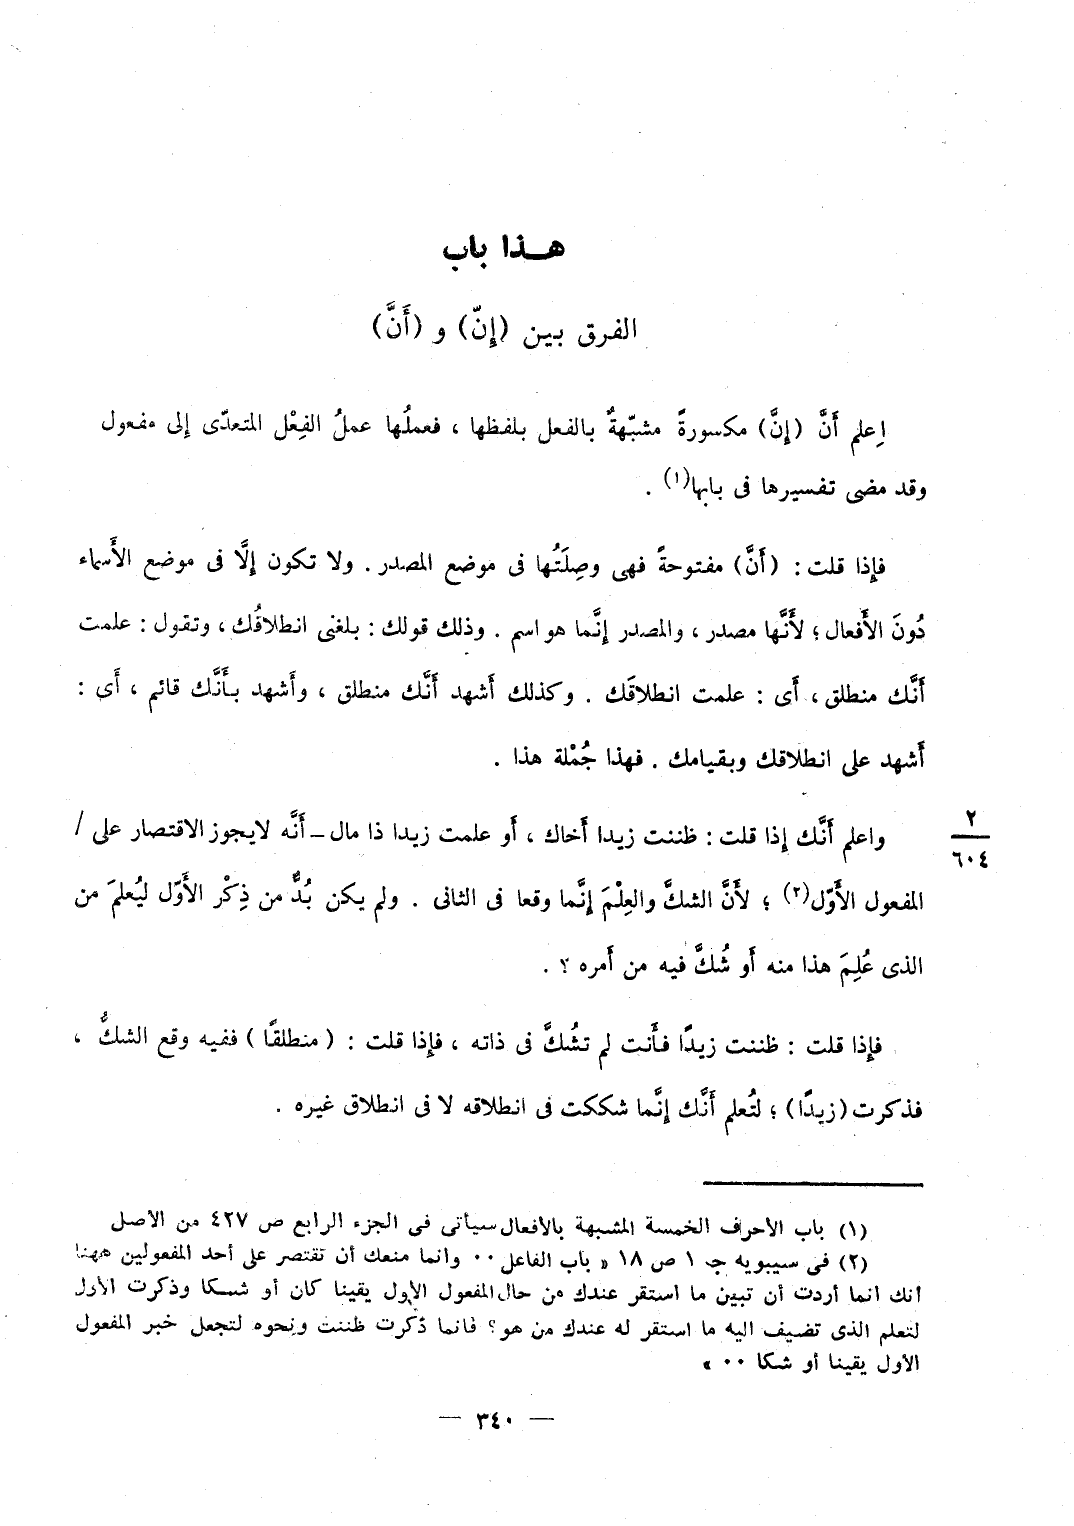 هـذا باب
الفرق بين (إنّ) و (أَنَّ)
اِعلم أَنَّ (إنَّ) مكسورةً مشبّهةٌ بالفعل بلفظها ، فعملُها عملُ الفِعْل المتعدّى إلى مفعول
وقد مضى تفسيرها فى بابها(١) .
فإِذا قلت : (أَنَّ) مفتوحةً فهى وصِلَتُها فى موضع المصدر . ولا تكون إلَّا فى موضع الأَسماء
دُونَ الأَفعال ؛ لأَنَّها مصدر ، والمصدر إنَّما هو اسم . وذلك قولك : بلغنى انطلاقُك ، وتقول : علمت
أَنَّك منطلق ، أَى : علمت انطلاقَك . وكذلك أَشهد أَنَّك منطلق ، وأَشهد بأَنَّك قائم ، أَى :
أَشهد على انطلاقك وبقيامك . فهذا جُمْلة هذا .
واعلم أَنَّك إذا قلت : ظننت زيدا أَخاك ، أَو علمت زيدا ذا مال – أَنَّه لايجوز الاقتصار على /
٢
٦٠٤
المفعول الأَوّل(٢) ؛ لأَنَّ الشكَّ والعِلْمَ إنَّما وقعا فى الثانى . ولم يكن بُدٌّ من ذِكْر الأَوّل ليُعلمَ من
الذى عُلِمَ هذا منه أَو شُكَّ فيه من أَمره ؟ .
فإِذا قلت : ظننت زيدًا فأَنت لم تشُكَّ فى ذاته ، فإِذا قلت : (منطلقًا) ففيه وقع الشكُّ ،
فذكرت (زيدًا) ؛ لتُعلم أَنَّك إنَّما شككت فى انطلاقه لا فى انطلاق غيره .
(١) باب الأحرف الخمسة المشبهة بالأفعال سيأتى فى الجزء الرابع ص ٤٢٧ من الأصل
(٢) فى سيبويه جـ ١ ص ١٨ « باب الفاعل ٠٠ وانما منعك أن تقتصر على أحد المفعولين ههنا
أنك انما أردت أن تبين ما استقر عندك من حال المفعول الأول يقينا كان أو شـكا وذكرت الأول
لتعلم الذى تضيف اليه ما استقر له عندك من هو؟ فانما ذكرت ظننت ونحوه لتجعل خبر المفعول
الأول يقينا أو شكا ٠٠ »
— ٣٤٠ —